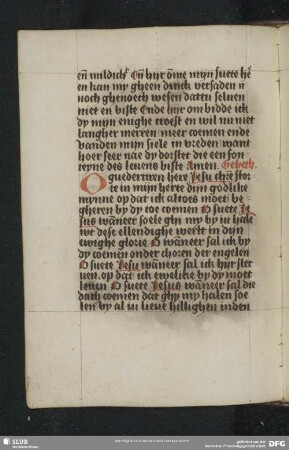 en mildich En hijr ōme mijn suete he
en kan my gheen dinck versaden n
noch ghenoech wesen dattu seluen
niet en biste Ende hijr om bidde ick
dy mijn enighe troest en wil nu niet
langher merren meer coemen ende
vanden mijn siele in vreden want
hoer seer nae dy dorstet die een fon
teyne des leuens biste Amen. Gebeth.
O guedertiren here Jesu christ stor
te in mijn herte dijn godlike
mynne op dat ick altoes moet be
gheren by dy toe coemen O suete Je
sus wāneer soele ghy my by u hale
wt deser ellendighe werlt in dijn
ewighe glorie O wāneer sal ick by
dy coemen onder choren der engelen
O suete Jesu wāneer sal ick hijr ster
uen, op dat ick ewelike by dy moet
leuen O suete Jesus wāneer sal die
dach coemen dat ghy my halen soe
len by al u lieue hillighen inden
SLUB
DFG